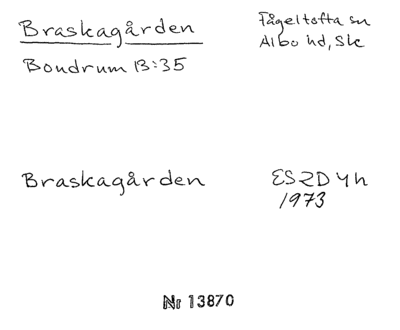 Braskagården
Fågeltofta sn
Albo hd, Sk
Bondrum 13:35
Braskagården
ES2D4h
1973
Nr 13870